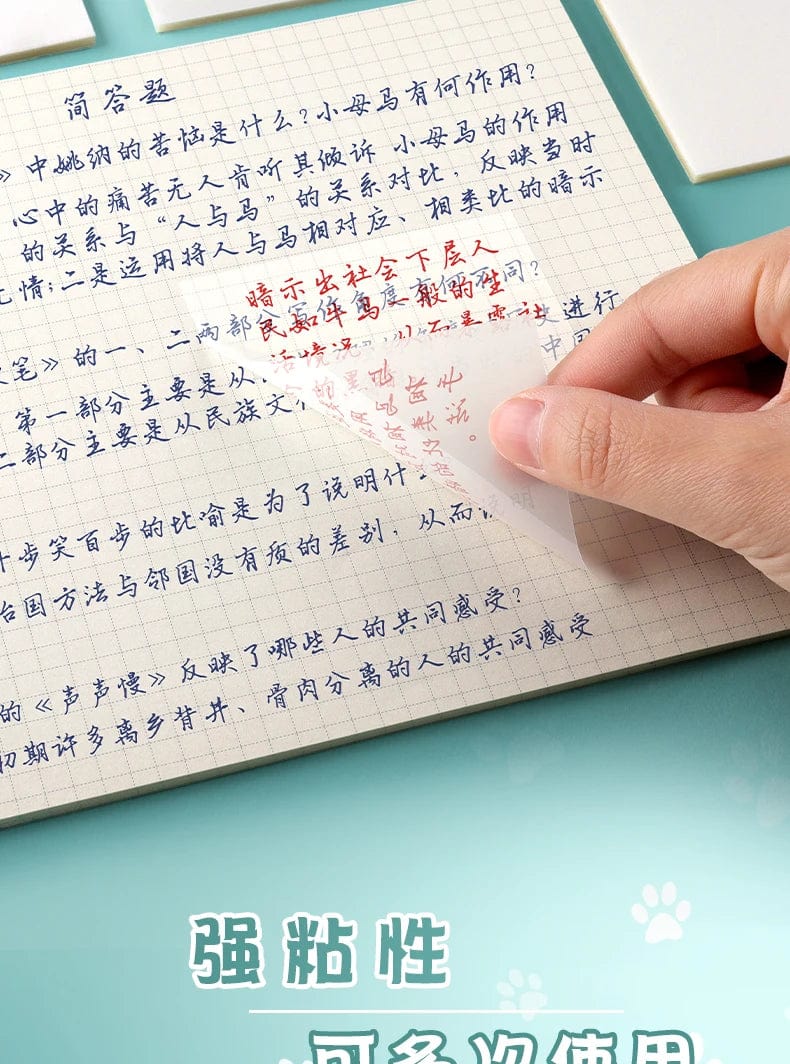 简答题
》中姚纳的苦恼是什么?小母马有何作用?
心中的痛苦无人肯听其倾诉 小母马的作用
的关系与“人与马”的关系对比，反映当时
无情;二是运用将人与马相对应、相类比的暗示
暗示出社会下层人
民如牛马一般的生
活境况
笔》的一、二两部分写作角度有何不同?
第一部分主要是从 史进行
二部分主要是从民族文
十步笑百步的比喻是为了说明什
治国方法与邻国没有质的差别，从而说明
的《声声慢》反映了哪些人的共同感受?
初期许多离乡背井、骨肉分离的人的共同感受
强粘性
可多次使用